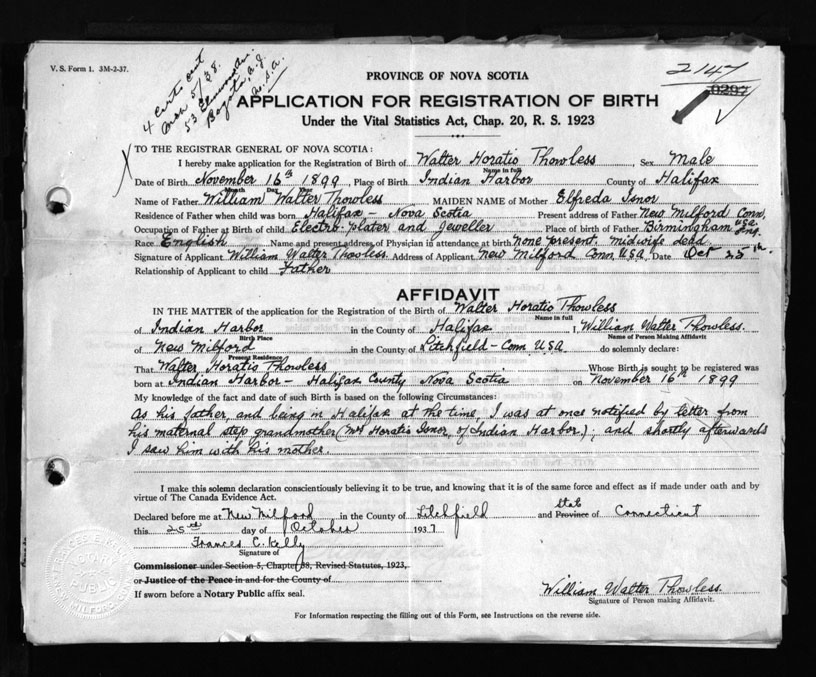 V. S. Form 1. 3M-2-37.
4 certs out
5/38.
53
Bogota, N.J.
U.S.A.
2147
0297
PROVINCE OF NOVA SCOTIA
APPLICATION FOR REGISTRATION OF BIRTH
Under the Vital Statistics Act, Chap. 20, R. S. 1923
TO THE REGISTRAR GENERAL OF NOVA SCOTIA:
I hereby make application for the Registration of Birth of Walter Horatio Thowless, Sex Male
Name in full
Date of Birth November 16th 1899, Place of Birth Indian Harbor County of Halifax
Month Day Year
Name of Father William Walter Thowless MAIDEN NAME of Mother Elfreda Isnor
Residence of Father when child was born Halifax - Nova Scotia Present address of Father New Milford Conn, USA
Occupation of Father at Birth of child Electro-plater and Jeweller Place of birth of Father Birmingham Eng.
Race English Name and present address of Physician in attendance at birth None present. midwife dead.
Signature of Applicant William Walter Thowless. Address of Applicant New Milford Conn. U.S.A. Date Oct 25th.
Relationship of Applicant to child Father
AFFIDAVIT
IN THE MATTER of the application for the Registration of the Birth of Walter Horatio Thowless
Name in full
of Indian Harbor in the County of Halifax I, William Walter Thowless.
Birth Place Name of Person Making Affidavit
of New Milford in the County of Litchfield - Conn. U.S.A. do solemnly declare:
Present Residence
That Walter Horatio Thowless Whose Birth is sought to be registered was
born at Indian Harbor - Halifax County Nova Scotia on November 16th 1899
My knowledge of the fact and date of such Birth is based on the following Circumstances:
As his father, and being in Halifax at the time, I was at once notified by letter from
his maternal step grandmother (Mrs Horatio Isnor, of Indian Harbor.); and shortly afterwards
I saw him with his mother.
I make this solemn declaration conscientiously believing it to be true, and knowing that it is of the same force and effect as if made under oath and by
virtue of The Canada Evidence Act.
Declared before me at New Milford in the County of Litchfield and Province of State Connecticut
this 25th day of October 1937
Frances C. Kelly
Signature of
Commissioner under Section 5, Chapter 38, Revised Statutes, 1923,
or Justice of the Peace in and for the County of
If sworn before a Notary Public affix seal.
William Walter Thowless.
Signature of Person making Affidavit.
For Information respecting the filling out of this Form, see Instructions on the reverse side.